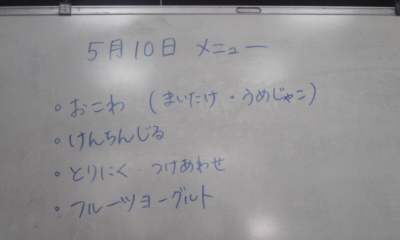 5月10日 メニュー
。おこわ (まいたけ・うめじゃこ)
。けんちんじる
。とりにく・つけあわせ
。フルーツヨーグルト